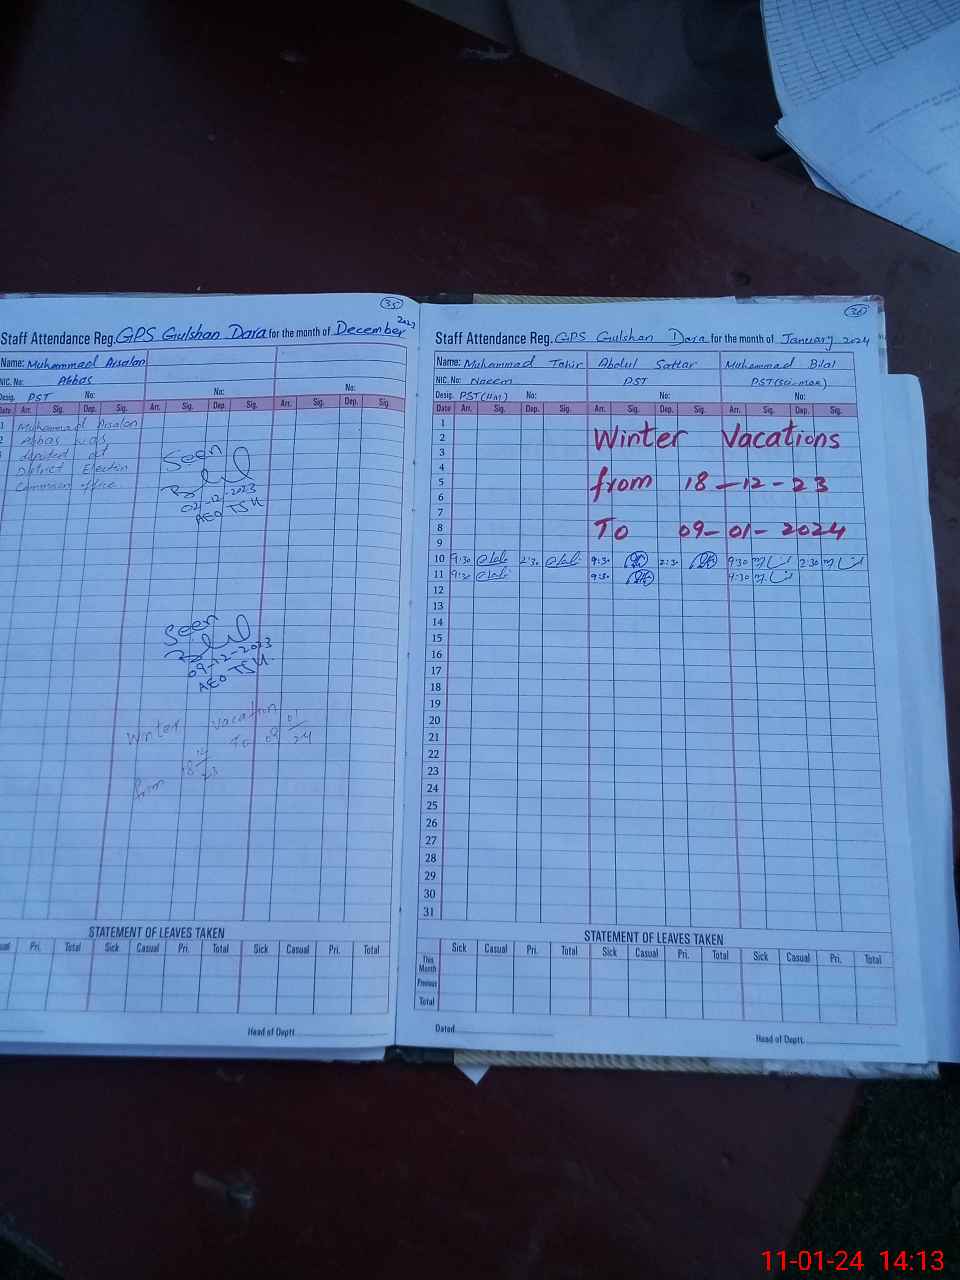 35
Staff Attendance Reg. GPS Gulshan Dara for the month of December 2023
Name: Muhammad Arsalan
NIC. No: Abbas
No:
No:
Desig. PST No:
Date Arr. Sig. Dep. Sig. Arr. Sig. Dep. Sig. Arr. Sig. Dep. Sig.
1 Muhammad Arsalan
2 Abbas was
3 deputed at
District Election
Commission office.
Seen
02-12-2023
AEO TSH
Seen
09-12-2023
AEO TSH
Winter vacation
from 18/12/23 To 09/01/24
STATEMENT OF LEAVES TAKEN
Pri. Total Sick Casual Pri. Total Sick Casual Pri. Total
Head of Deptt.
36
Staff Attendance Reg. GPS Gulshan Dara for the month of January 2024
Name: Muhammad Tahir Abdul Sattar Muhammad Bilal
NIC. No: Naeem PST PST(Sci-math)
Desig. PST(HM) No: No: No:
Date Arr. Sig. Dep. Sig. Arr. Sig. Dep. Sig. Arr. Sig. Dep. Sig.
1
2 Winter Vacations
3
4
5 from 18-12-23
6
7
8 To 09-01-2024
9
10 9:30 2:30 9:30 2:30 9:30 2:30
11 9:30 9:30 9:30
12
13
14
15
16
17
18
19
20
21
22
23
24
25
26
27
28
29
30
31
STATEMENT OF LEAVES TAKEN
Sick Casual Pri. Total Sick Casual Pri. Total Sick Casual Pri. Total
This Month
Previous
Total
Dated
Head of Deptt.
11-01-24 14:13